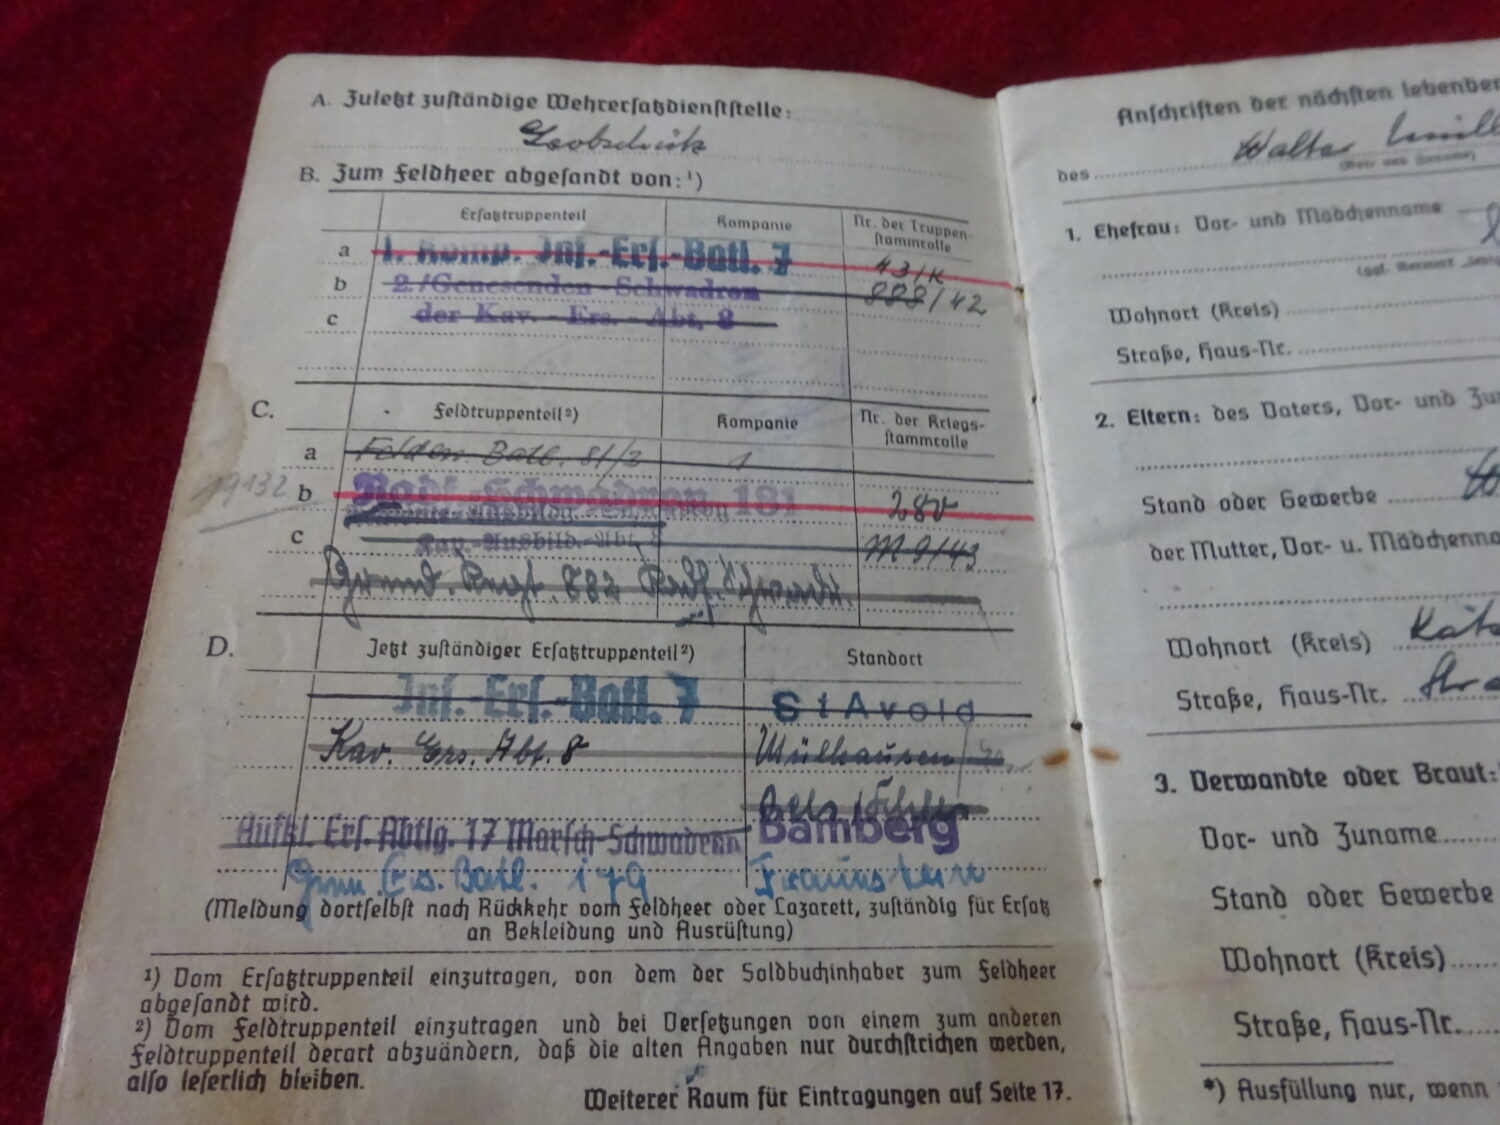 A. Zuletzt zuständige Wehrersatzdienststelle:
Leobschütz
B. Zum Feldheer abgesandt von:¹)
Ersatztruppenteil Kompanie Nr. der Truppenstammrolle
a 1. Komp. Inf.-Ers.-Batl. 7 43/K
b 2./Genesenden-Schwadron 888/42
c der Kav.-Ers.-Abt. 8
C. Feldtruppenteil²) Kompanie Nr. der Kriegsstammrolle
a Felders. Batl. 81/3 1
19132 b Radf.-Schwadron 181 280
c Kav.-Ausbild.-Abt. M 9/43
Gren. Regt. 882
D. Jetzt zuständiger Ersatztruppenteil²) Standort
Inf.-Ers.-Batl. 7 St Avold
Kav. Ers. Abt. 8 Mülhausen
Aufkl. Ers. Abtlg. 17 Marsch-Schwadron Bamberg
Gren. Ers. Batl. 179 Traunstein
(Meldung dortselbst nach Rückkehr vom Feldheer oder Lazarett, zuständig für Ersatz
an Bekleidung und Ausrüstung)
¹) Vom Ersatztruppenteil einzutragen, von dem der Soldbuchinhaber zum Feldheer
abgesandt wird.
²) Vom Feldtruppenteil einzutragen und bei Versetzungen von einem zum anderen
Feldtruppenteil derart abzuändern, daß die alten Angaben nur durchstrichen werden,
also leserlich bleiben.
Weiterer Raum für Eintragungen auf Seite 17.
Anschriften der nächsten lebenden
des Walter
1. Ehefrau: Vor- und Mädchenname
Wohnort (Kreis)
Straße, Haus-Nr.
2. Eltern: des Vaters, Vor- und Zu
Stand oder Gewerbe
der Mutter, Vor- u. Mädchenna
Wohnort (Kreis)
Straße, Haus-Nr.
3. Verwandte oder Braut:
Vor- und Zuname
Stand oder Gewerbe
Wohnort (Kreis)
Straße, Haus-Nr.
*) Ausfüllung nur, wenn